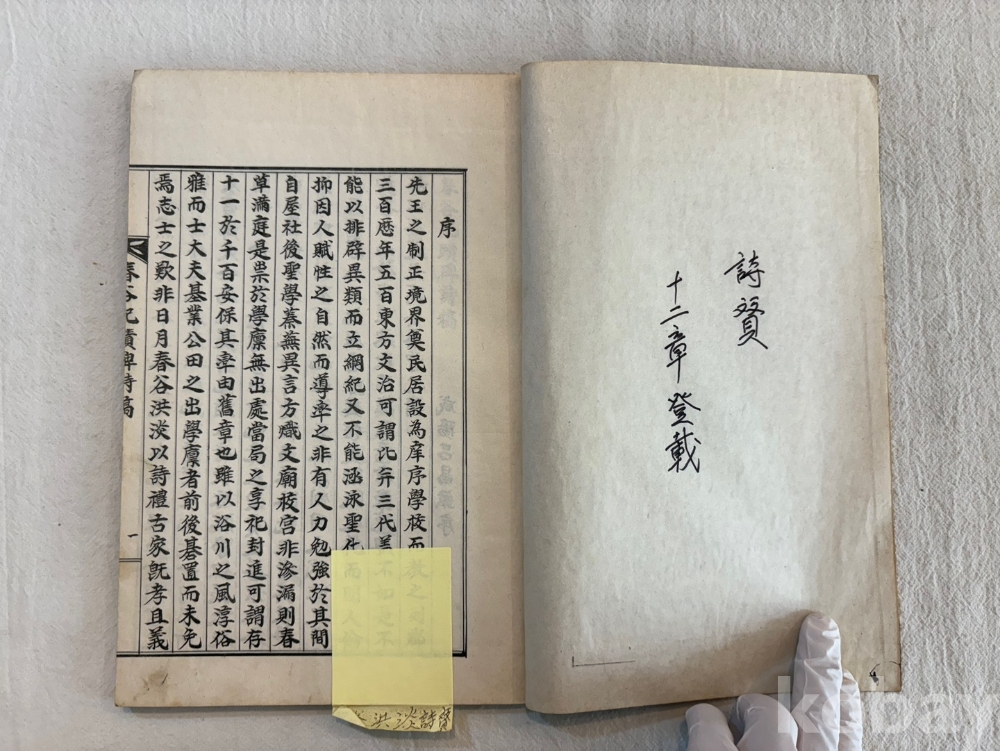 詩贒
十二章登載
序
先王之制正境界奠民居設為庠序學校而
三百歷年五百東方文治可謂比弁三代
能以排辟異類而立綱紀又不能涵泳聖化
抑因人賦性之自然而導率之非有人力勉強於其間
自屋社後聖學蓁蕪異言方熾文廟校宮非滲漏則春
草滿庭是祟於學廩無出處當局之享祀封進可謂存
十一於千百安保其率由舊章也雖以浴川之風淳俗
雅而士大夫基業公田之出學廩者前後碁置而未免
焉志士之歎非日月春谷洪淡以詩禮古家旣孝且義
春谷紀蹟碑詩稿
一
洪淡詩贒
kobay